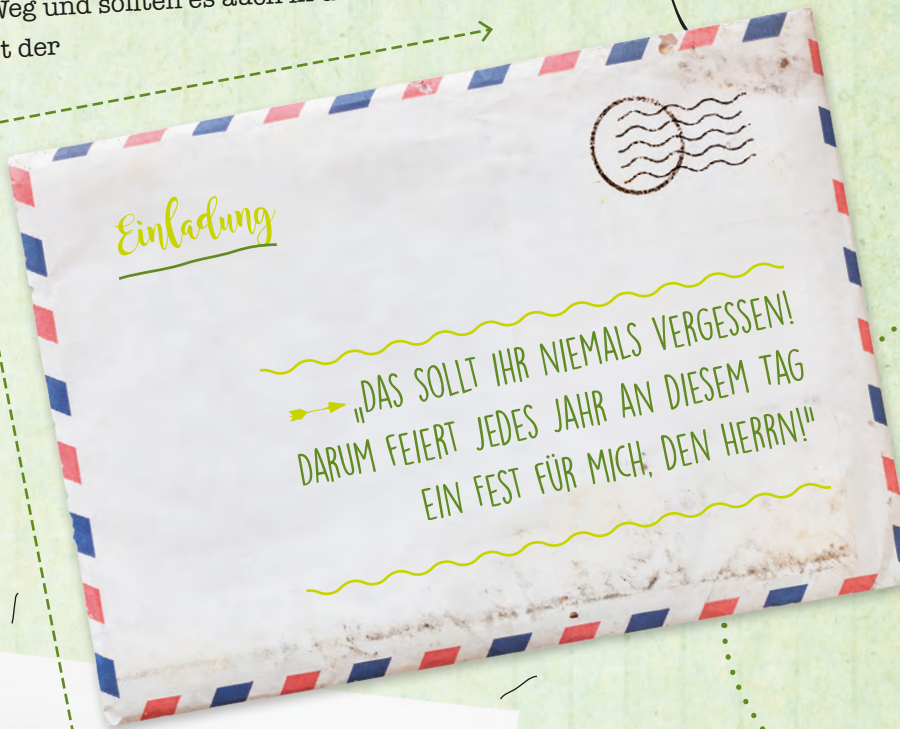 Weg und sollten es auch in d
t der
Einladung
„DAS SOLLT IHR NIEMALS VERGESSEN!
DARUM FEIERT JEDES JAHR AN DIESEM TAG
EIN FEST FÜR MICH, DEN HERRN!"